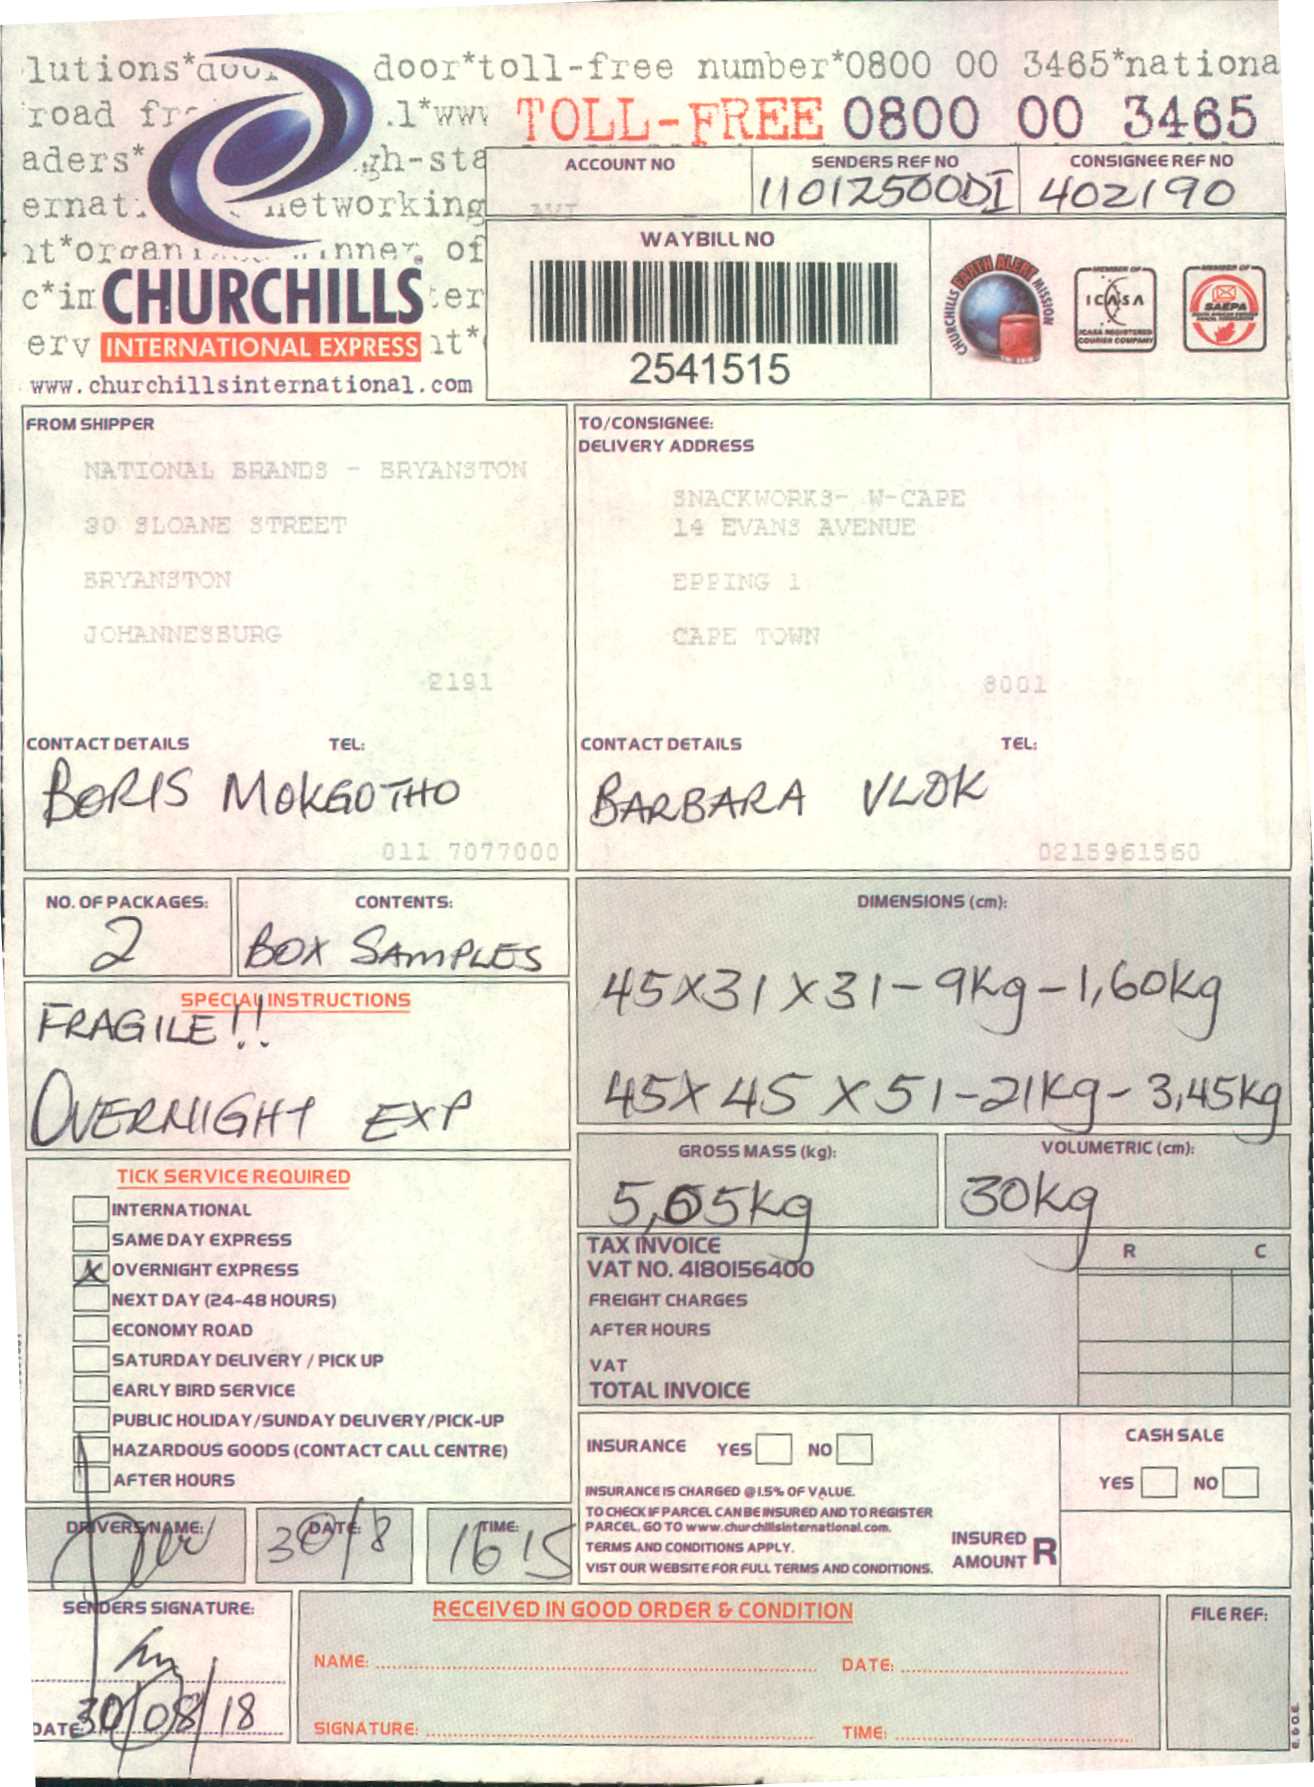 lutions*door door*toll-free number*0800 00 3465*nationa
road fr .l*www TOLL-FREE 0800 00 3465
aders* gh-sta
ernat networking
nt*organi inner of
c*in ter
erv nt*
CHURCHILLS
INTERNATIONAL EXPRESS
www.churchillsinternational.com
ACCOUNT NO SENDERS REF NO CONSIGNEE REF NO
AVI 11012500DI 402190
WAYBILL NO
2541515
CHURCHILLS EARTH ALERT MISSION
MEMBER OF ICASA ICASA REGISTERED COURIER COMPANY
MEMBER OF SAEPA
FROM SHIPPER
NATIONAL BRANDS - BRYANSTON
30 SLOANE STREET
BRYANSTON
JOHANNESBURG
2191
CONTACT DETAILS TEL:
BORIS MOKGOTHO
011 7077000
TO/CONSIGNEE:
DELIVERY ADDRESS
SNACKWORKS- W-CAPE
14 EVANS AVENUE
EPPING 1
CAPE TOWN
8001
CONTACT DETAILS TEL:
BARBARA VLOK
0215961560
NO. OF PACKAGES: CONTENTS:
2 BOX SAMPLES
SPECIAL INSTRUCTIONS
FRAGILE!!
OVERNIGHT EXP
DIMENSIONS (cm):
45X31X31-9Kg-1,60kg
45X45X51-21Kg-3,45kg
GROSS MASS (kg): VOLUMETRIC (cm):
5,05kg 30kg
TICK SERVICE REQUIRED
INTERNATIONAL
SAME DAY EXPRESS
X OVERNIGHT EXPRESS
NEXT DAY (24-48 HOURS)
ECONOMY ROAD
SATURDAY DELIVERY / PICK UP
EARLY BIRD SERVICE
PUBLIC HOLIDAY/SUNDAY DELIVERY/PICK-UP
HAZARDOUS GOODS (CONTACT CALL CENTRE)
AFTER HOURS
TAX INVOICE R C
VAT NO. 4180156400
FREIGHT CHARGES
AFTER HOURS
VAT
TOTAL INVOICE
INSURANCE YES NO
INSURANCE IS CHARGED @1.5% OF VALUE.
TO CHECK IF PARCEL CAN BE INSURED AND TO REGISTER
PARCEL, GO TO www.churchillsinternational.com.
TERMS AND CONDITIONS APPLY.
VIST OUR WEBSITE FOR FULL TERMS AND CONDITIONS.
INSURED AMOUNT R
CASH SALE
YES NO
DRIVERS NAME: DATE: TIME:
30/8 1615
SENDERS SIGNATURE:
DATE: 30/08/18
RECEIVED IN GOOD ORDER & CONDITION
NAME: DATE:
SIGNATURE: TIME:
FILE REF:
E. & O.E.